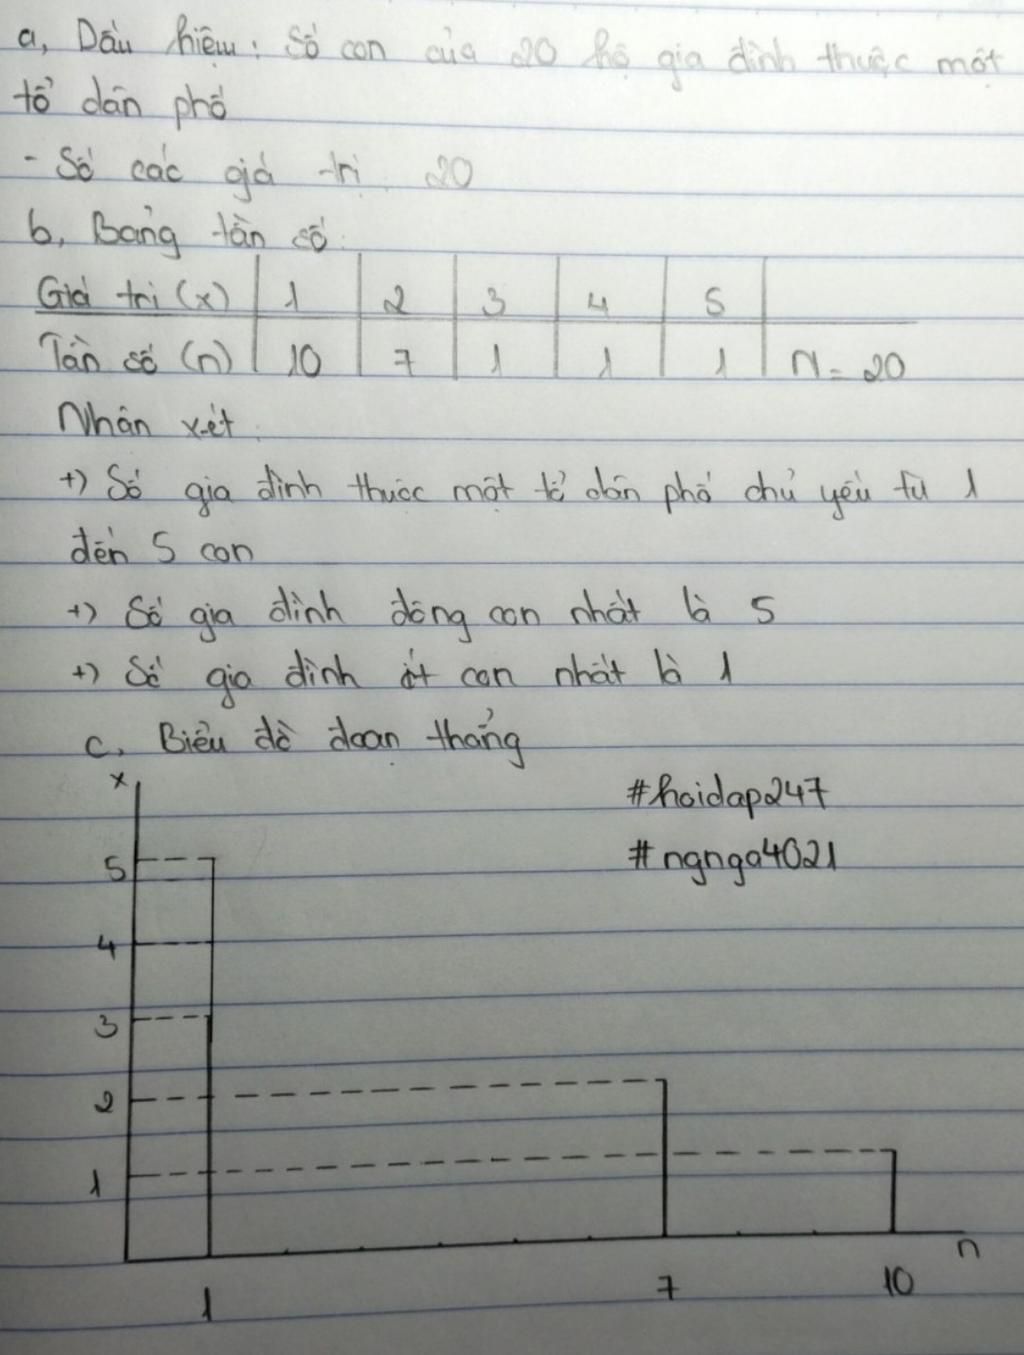 a, Dấu hiệu: Số con của 20 hộ gia đình thuộc một
tổ dân phố
- Số các giá trị: 20
b, Bảng tần số:
Giá trị (x) 1 2 3 4 5
Tần số (n) 10 7 1 1 1 N = 20
Nhận xét:
+) Số gia đình thuộc một tổ dân phố chủ yếu từ 1
đến 5 con
+) Số gia đình đông con nhất là 5
+) Số gia đình ít con nhất là 1
c, Biểu đồ đoạn thẳng
x
#hoidap247
#ngnga4021
5
4
3
2
1
n
1 7 10